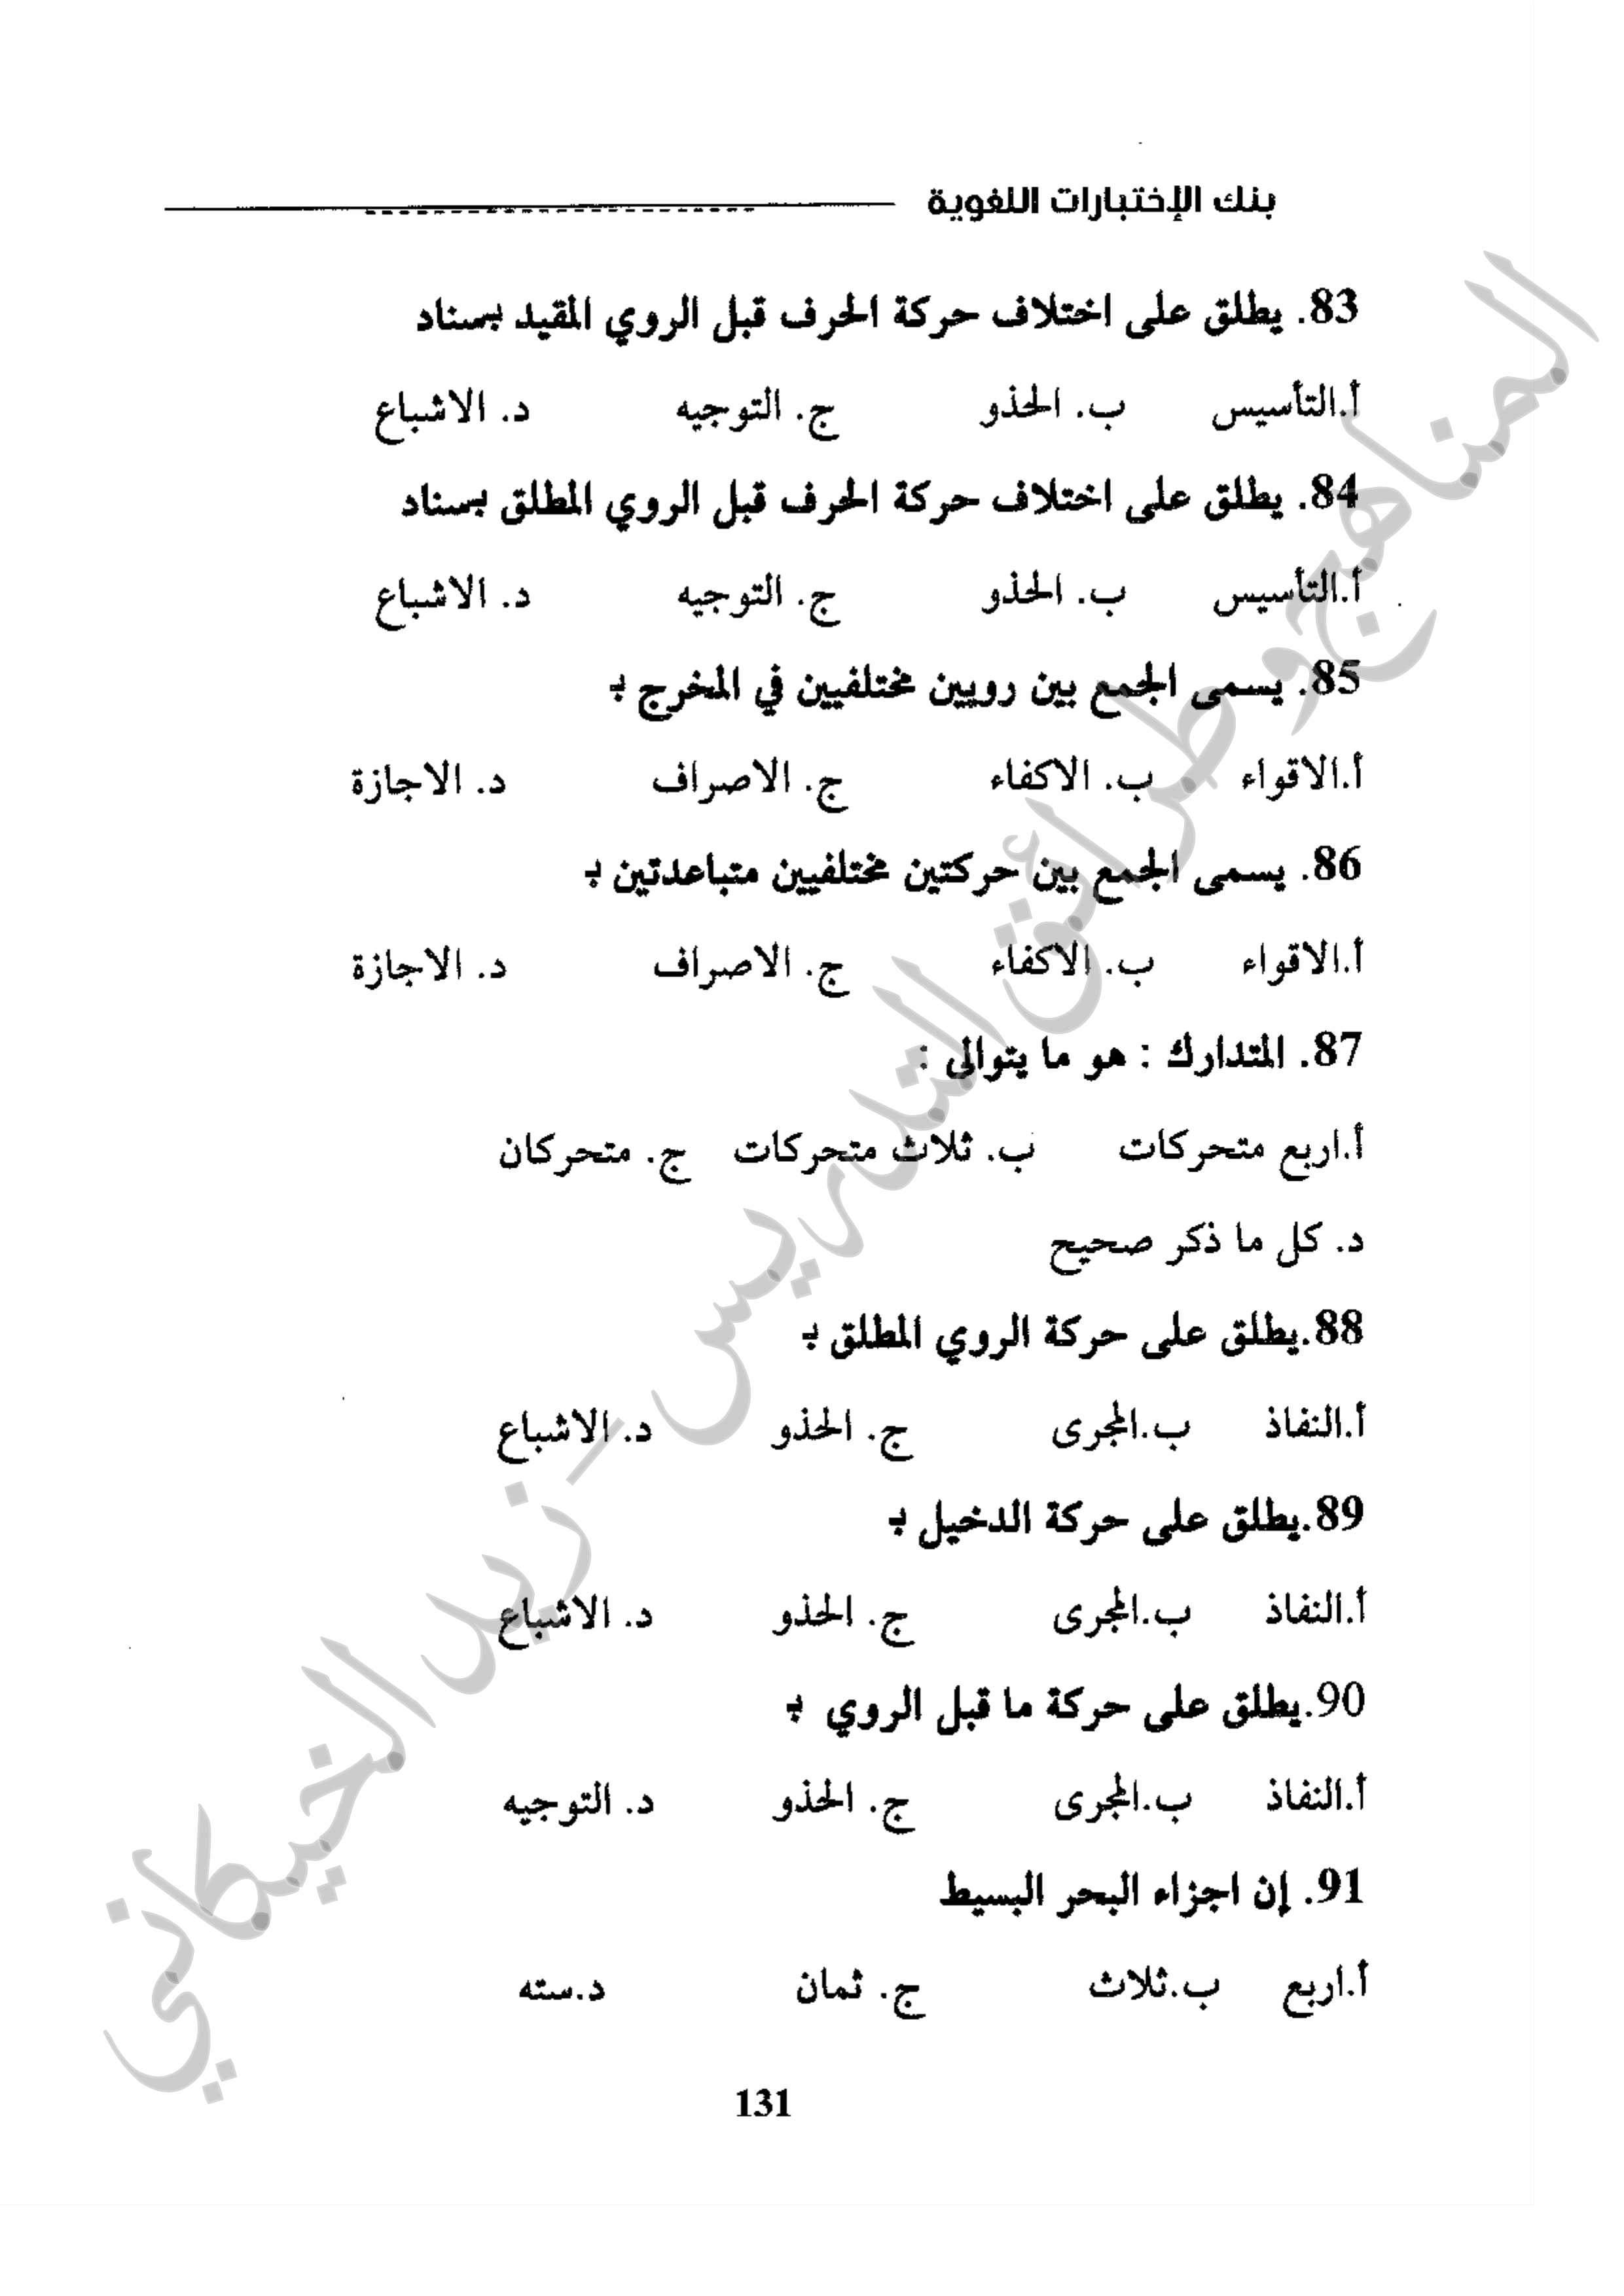 بنك الإختبارات اللغوية
83. يطلق على اختلاف حركة الحرف قبل الروي المقيد بسناد
أ.التأسيس ب. الحذو ج. التوجيه د. الاشباع
84. يطلق على اختلاف حركة الحرف قبل الروي المطلق بسناد
أ.التأسيس ب. الحذو ج. التوجيه د. الاشباع
85. يسمى الجمع بين رويين مختلفيين في المخرج بـ
أ.الاقواء ب. الاكفاء ج. الاصراف د. الاجازة
86. يسمى الجمع بين حركتين مختلفيين متباعدتين بـ
أ.الاقواء ب. الاكفاء ج. الاصراف د. الاجازة
87. المتدارك : هو ما يتوالى :
أ.اربع متحركات ب. ثلاث متحركات ج. متحركان
د. كل ما ذكر صحيح
88.يطلق على حركة الروي المطلق بـ
أ.النفاذ ب.المجرى ج. الحذو د. الاشباع
89.يطلق على حركة الدخيل بـ
أ.النفاذ ب.المجرى ج. الحذو د. الاشباع
90.يطلق على حركة ما قبل الروي بـ
أ.النفاذ ب.المجرى ج. الحذو د. التوجيه
91. إن اجزاء البحر البسيط
أ.اربع ب.ثلاث ج. ثمان د.سته
131
المناهج وطرائق التدريس - زيد الخيكاني